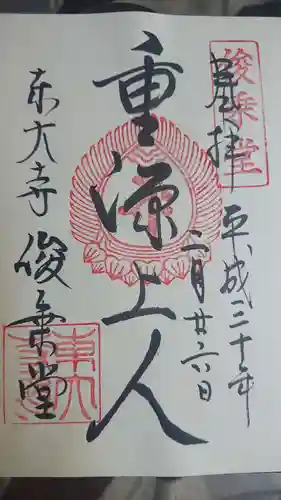 奉拝
俊乗堂
平成三十年
二月廿六日
重源上人
東大寺
俊乗堂